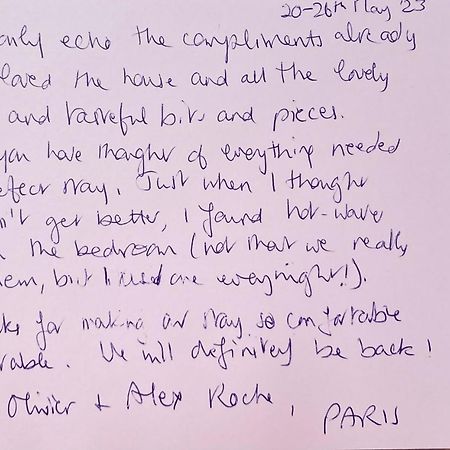 20-26th May '23
only echo the compliments already
loved the house and all the lovely
and tasteful bits and pieces.
you have thought of everything needed
erfect stay. Just when I thought
n't get better, I found hot-water
the bedroom (not that we really
hem, but I used one everynight!).
ks for making our stay so comfortable
rable. We will definitely be back!
Olivier + Alex Roche, PARIS